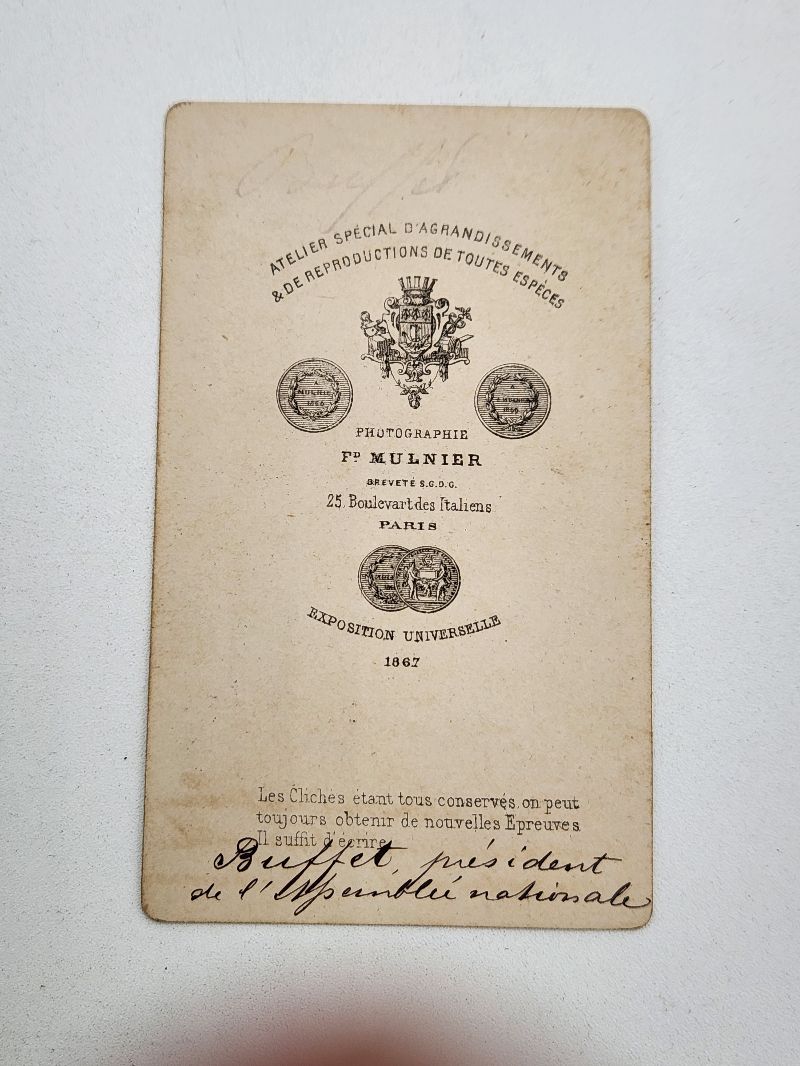 Buffet
ATELIER SPÉCIAL D'AGRANDISSEMENTS
& DE REPRODUCTIONS DE TOUTES ESPÈCES
PHOTOGRAPHIE
FD MULNIER
BREVETÉ S.G.D.G.
25, Boulevart des Italiens
PARIS
EXPOSITION UNIVERSELLE
1867
Les Clichés étant tous conservés, on peut
toujours obtenir de nouvelles Epreuves
Il suffit d'écrire
Buffet, président
de l'Assemblée nationale